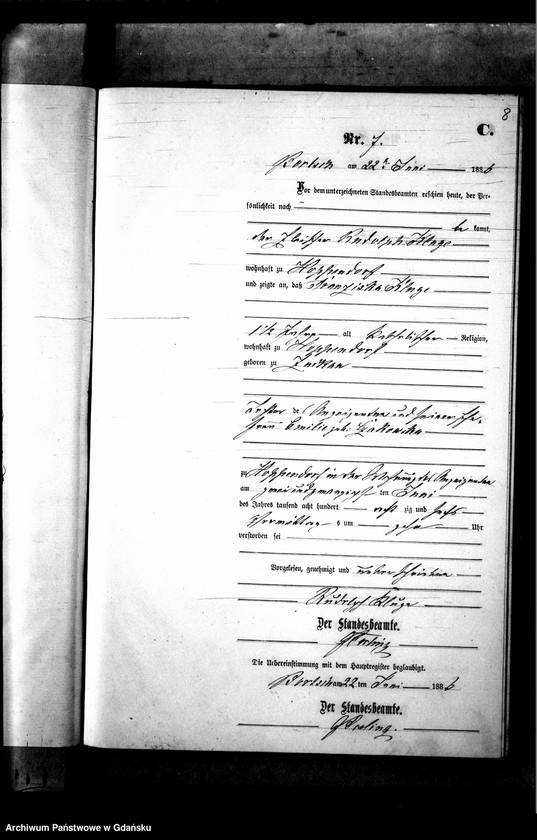 8
C.
Nr. 7.
am 22ten Juni 1886
Vor dem unterzeichneten Standesbeamten erschien heute, der Per-
sönlichkeit nach
be kannt,
der Rudolph Kluge
wohnhaft zu Hoppendorf
und zeigte an, daß Franziska Kluge
1½ Jahre alt katholischer Religion,
wohnhaft zu Hoppendorf
geboren zu
Tochter des Anzeigenden und seiner Ehe-
frau Emilie geb.
zu Hoppendorf in der Wohnung des Anzeigenden
am zwei und zwanzigsten ten Juni
des Jahres tausend acht hundert acht zig und sechs
Vormittags um zehn Uhr
verstorben sei
Vorgelesen, genehmigt und unterschrieben
Rudolf Kluge
Der Standesbeamte.
Die Uebereinstimmung mit dem Hauptregister beglaubigt.
am 22 ten Juni 1886
Der Standesbeamte.
Archiwum Państwowe w Gdańsku